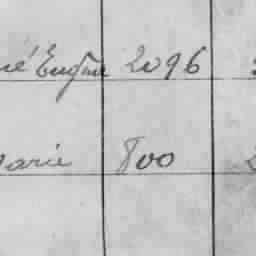 né Eugène 2096
Marie 800